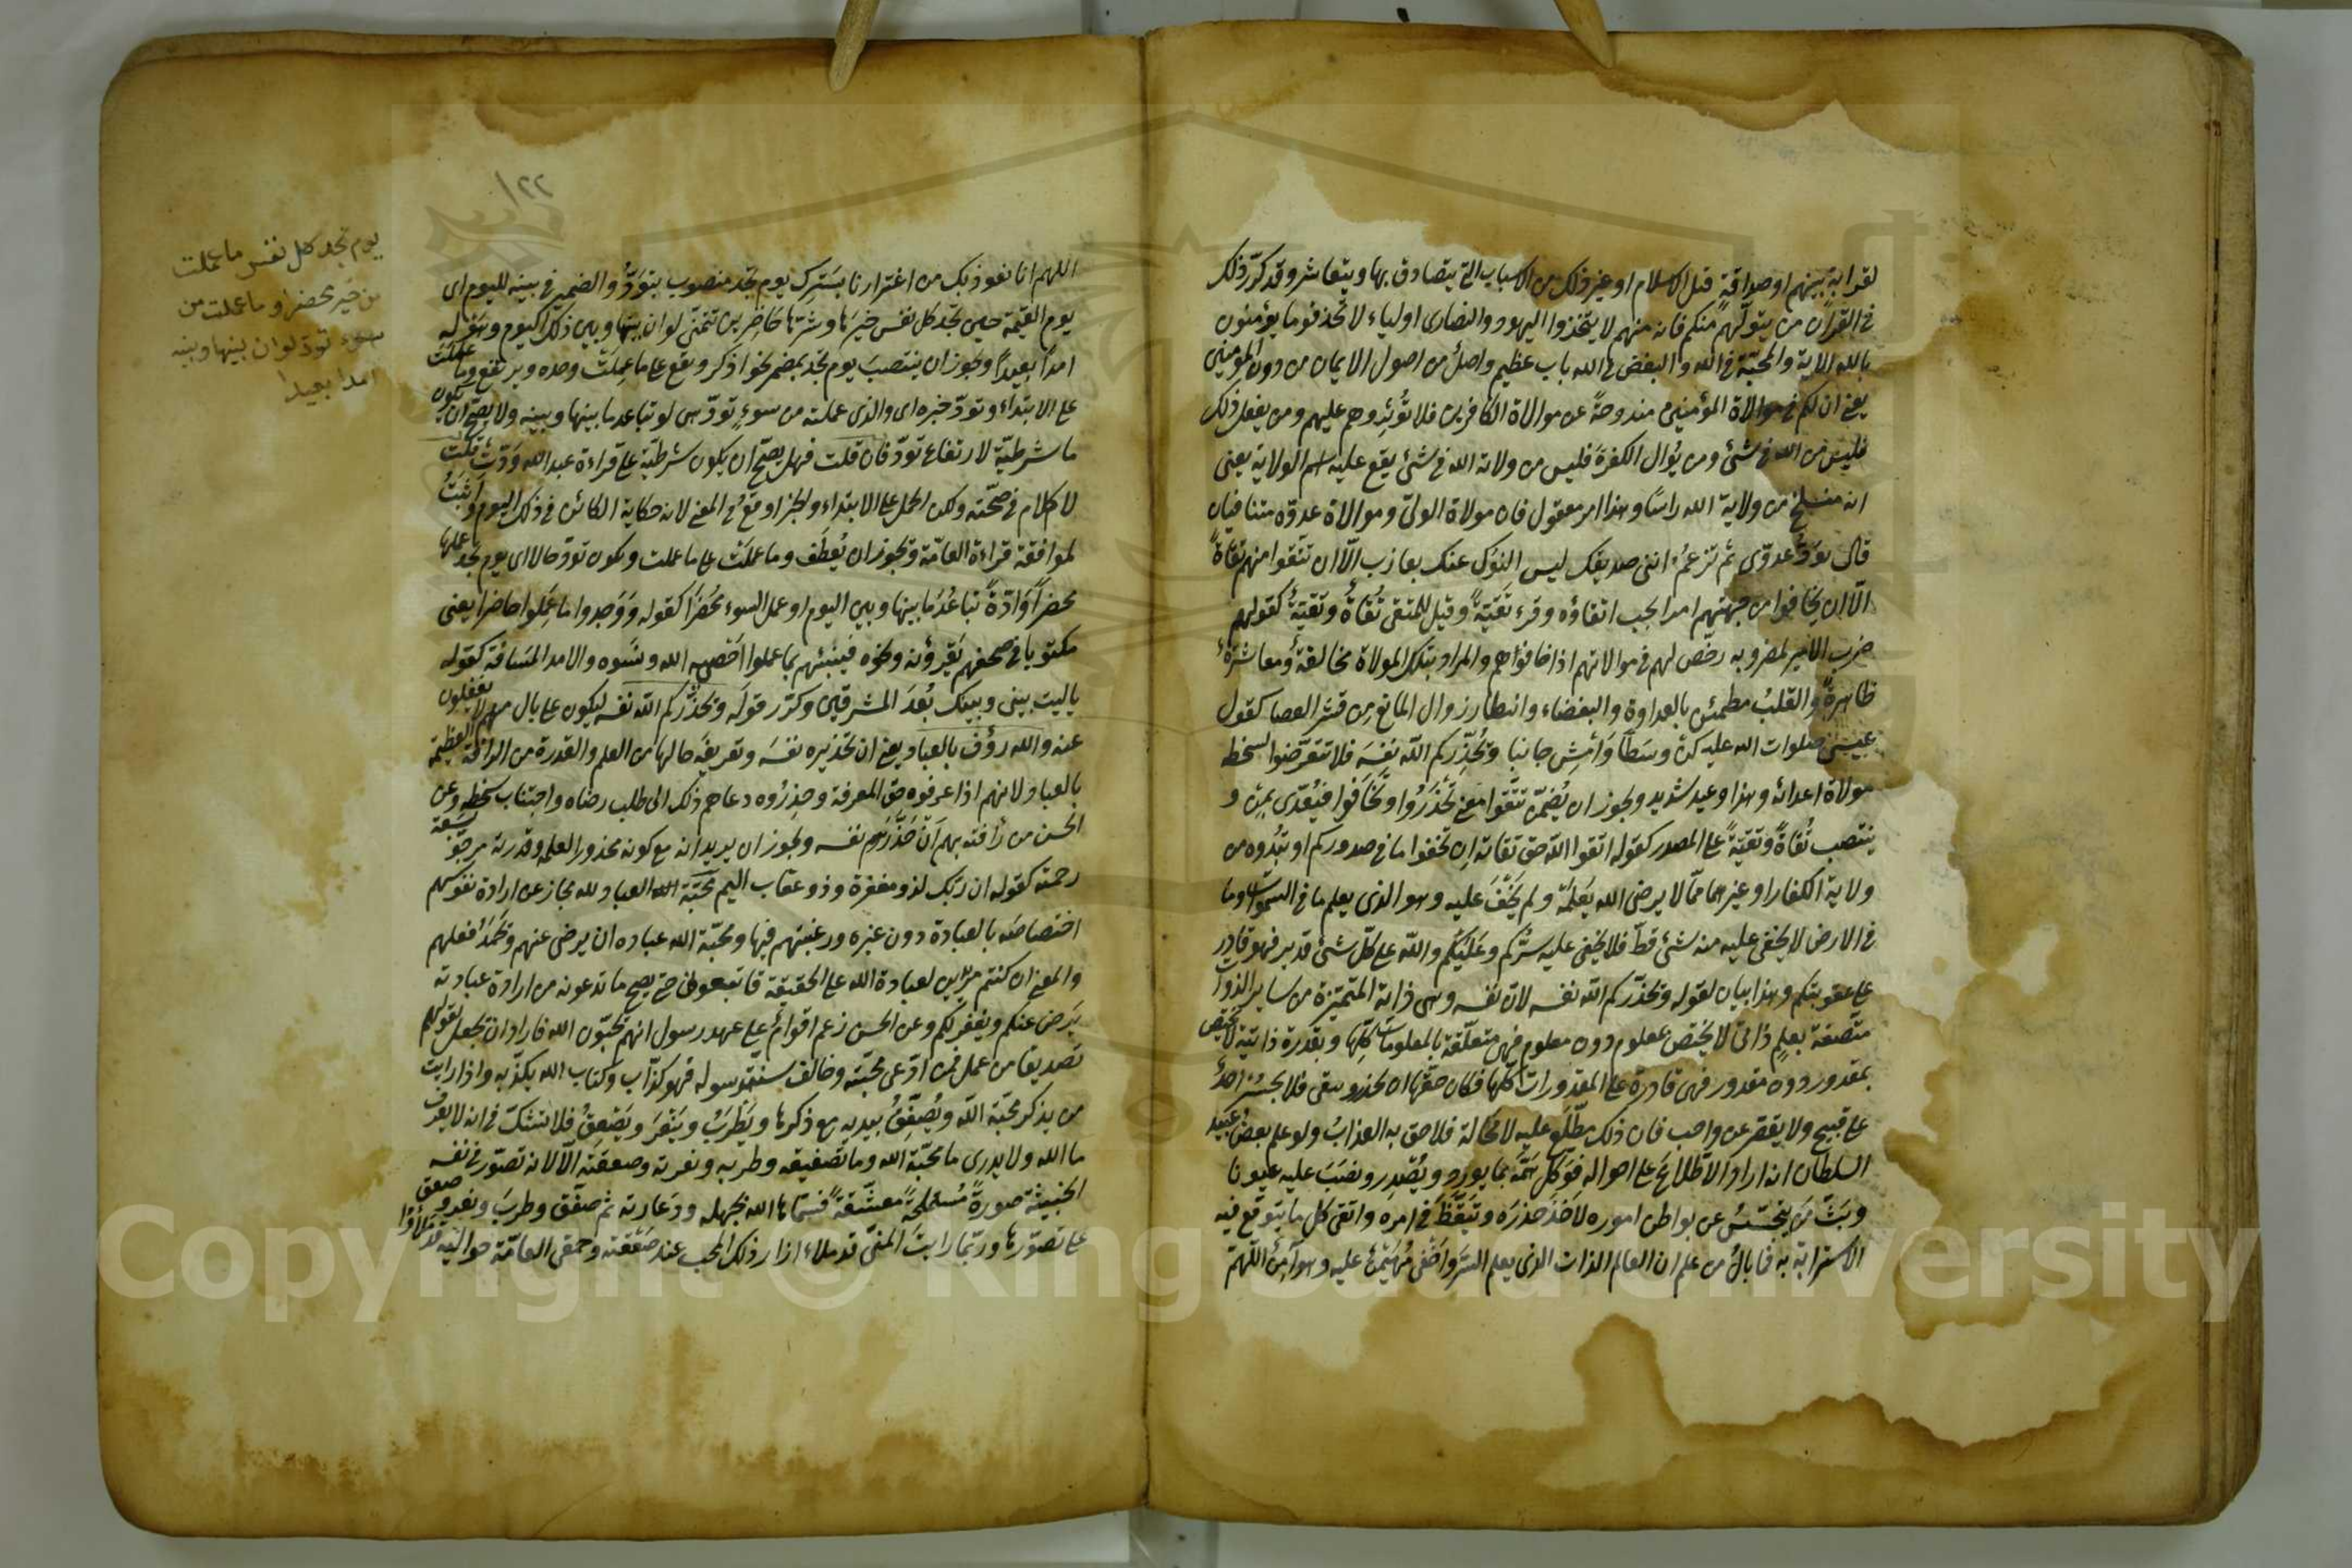 لقرابة بينهم او صداقة قبل الاسلام او غير ذلك من الاسباب التي يتصادق بها ويتعاشر وقد كرّر ذلك
في القرآن من يتولّهم منكم فانه منهم لا يتخذوا اليهود والنصارى اولياء لا تجد قوما يؤمنون
بالله الاية والمحبّة في الله والبغض في الله باب عظيم واصل من اصول الايمان من دون المؤمنين
يعني ان لكم في موالاة المؤمنين مندوحةً عن موالاة الكافرين فلا تؤثروهم عليهم ومن يفعل ذلك
فليس من الله في شئ ومن يُوال الكفرة فليس من ولاية الله في شئ يقع عليه اسم الولاية يعنى
انه منسلخ من ولاية الله راسًا وهذا امر معقول فان موالاة الولىّ وموالاة عدوّه متنافيان
قال تودّ عدوّى ثم تزعمُ اننى صديقك ليس النوك عنك بعازب الّا ان تتّقوا منهم تقاةً
الّا ان يخافوا من جهتهم امرا يجب اتقاؤه وقرئ تَقيّةً وقيل للمتقى تُقاةٌ وتقيّةٌ كقولهم
ضرب الامير لمضروبه رخّص لهم في موالاتهم اذا خافوهم والمراد بتلك الموالاة مخالقةٌ ومعاشرةٌ
ظاهرةٌ والقلبُ مطمئن بالعداوة والبغضاء وانتظار زوال المانع من قشر العصا كقول
عيسى صلوات الله عليه كن وسَطًا وَامْشِ جانبا ويُحذِّركم اللّه نفسَه فلا تتعرّضوا لسخطه
موالاة اعدائه وهذا وعيد شديد ويجوز ان يُضمّن تتّقوا معنى تَحْذَرُوا وتَخافوا فيُعدّى بِمِن و
ينتصب تُقاةً وتقيّةً على المصدر كقوله اتقوا اللّه حق تقاته اِن تخفوا ما في صدوركم او تبدُوه من
ولاية الكفار او غيرها ممّا لا يرضى الله يَعلمْه ولم يَخْفَ عليه وهو الذى يعلم ما في السموات وما
في الارض لا يخفى عليه منه شئ قطّ فلا يخفى عليه سرّكم وعَلَنُكُم واللّه على كلّ شئ قدير فهو قادر
على عقوبتكم وهذا بيان لقوله ويحذّركم اللّه نفسه لان نفسه وهى ذاته المتميّزة من ساير الذوات
متّصفة بعلمٍ ذاتىّ لا يختص بمعلوم دون معلوم فهى متعلّقة بالمعلومات كلّها وبقدرة ذاتيّة لا تختص
بمقدور دون مقدور فهى قادرة على المقدورات كلّها فكان حقّها ان تحذر وتتقى فلا يجسُرَ احدٌ
على قبيح ولا يقصّر عن واجب فان ذلك مطّلَع عليه لا محالة فلاحق به العذابُ ولو علم بعضُ عبيد
السلطان انه اراد الاطّلاعَ على احواله فوَكّل هَمَّه بما يورد ويُصْدِر ونصَب عليه عيونا
وبَثّ مَن يتجسّسُ عن بواطن اموره لَاَخَذَ حِذرَه وتَيَقّظَ في امره واتقى كل ما يتوقّع فيه
الاسترابة به فما بالُ من علم ان العالم الذات الذى يعلم السرّ واَخْفى مُهَيْمِنٌ عليه وهو آمِنٌ اللهمّ
١٢٢
اللهم انا نعوذ بك من اغترارنا بسَترك يوم تجد منصوب بتَوَدُّ والضمير في بينه لليوم اى
يوم القيٰمة حين تجد كل نفس خيرَها وشرّها حَاضِرين تتمنّى لو ان بينها وبين ذلك اليوم وهَوله
امداً بعيداً ويجوز ان ينتصبَ يوم تجد بمضمر نحو اذكر ويقع على ما عملت وحده ويرتفع وما عملت
على الابتداء وتودّ خبره اى والذى عملته من سوءٍ تودّ هى لو تباعد ما بينها وبينه ولا يصحّ ان يكون
ما شرطيّة لارتفاع تودّ فان قلت فهل يصحّ ان يكون شرطيّة على قراءة عبد الله وَدّتْ قلت
لا كلام في صحّته ولكن الحمل على الابتداء والخبر اوقعُ في المعنى لانه حكاية الكائن في ذلك اليوم واَثْبَتُ
لموافقة قراءة العامّة ويجوز ان يُعطَف وما عملَتْ على ما عملت ويكون تودّ حالا اى يوم تجد عملها
محضراً وَادّةً تباعُدَ ما بينها وبين اليوم او عمل السوء مُحضَرًا كقوله ووَجدوا ما عَمِلُوا حاضرا يعنى
مكتوبا في صحفهم يَقرؤنه ونحوه فينبئهم بما عملوا احْصيه الله ونَسوه والامد المسَافة كقوله
يا ليت بينى وبينك بُعدَ المشرقين وكرّر قولَه ويُحذّركم اللّه نفسه ليكون على بال منهم لا يغفلون
عنه والله رؤف بالعباد يعنى ان تحذيره نفسَه وتعريفَه حالها من العلم والقدرة من الرافة العظيمة
بالعباد لانهم اذا عرفوه حق المعرفة وحذِرُوه دعاهم ذلك الى طلب رضاه واجتناب سخطه وعن
الحسن من رأفته بهم اَنْ حَذّرَهم نفسه ويجوز ان يريد انه مع كونه محذورا لعلمه وقدرته مرجوّ لسَعة
رحمته كقوله ان ربّك لذو مغفرة وذو عقاب اليم محبّة العباد لله مجاز عن ارادة نفوسهم
اختصاصَه بالعبادة دون غيره ورغبتهم فيها ومحبّة الله عباده ان يرضى عنهم ويَحْمَدَ فعلهم
والمعنى ان كنتم مريدين لعبادة الله على الحقيقة فاتبعونى حتى يصح ما تدعونه من ارادة عبادته
يَرضَ عنكم ويغفر لكم وعن الحسن زعم اقوامٌ على عهد رسول انهم يحبّون الله فاراد ان يجعل لقولهم
تصديقا من عمل فمن ادّعى محبّته وخالف سنّة رسوله فهو كذّاب وكتاب الله يكذّبه واذا رايت
من يذكر محبّة اللّه ويُصفِّقُ بيديه مع ذكرها ويَطْرَبُ ويَنْعَرَ ويَصْعِقُ فلا تشكّ في انه لا يعرف
ما الله ولا يدرى ما محبّة الله وما تصفيقه وطربه ونعرته وصعقته الّا لانه تصوّر في نفسه
الخبيثة صورةً مُستملحَةً معشّقةً فسمّاها الله بجهله ودَعارته ثم صفّق وطربَ ونعر وصعق
على تصوّرها وربّما رايتَ المنىّ قد ملاء ازار ذلك المحب عند صَعْقته وحمقى العامّة حواليه قد ملأوا
يوم تجد كل نفس ما عملت
من خير محضرا وما عملت من
سوء تودّ لو ان بينها وبينه
امدا بعيدا
Copyright © King Saud University